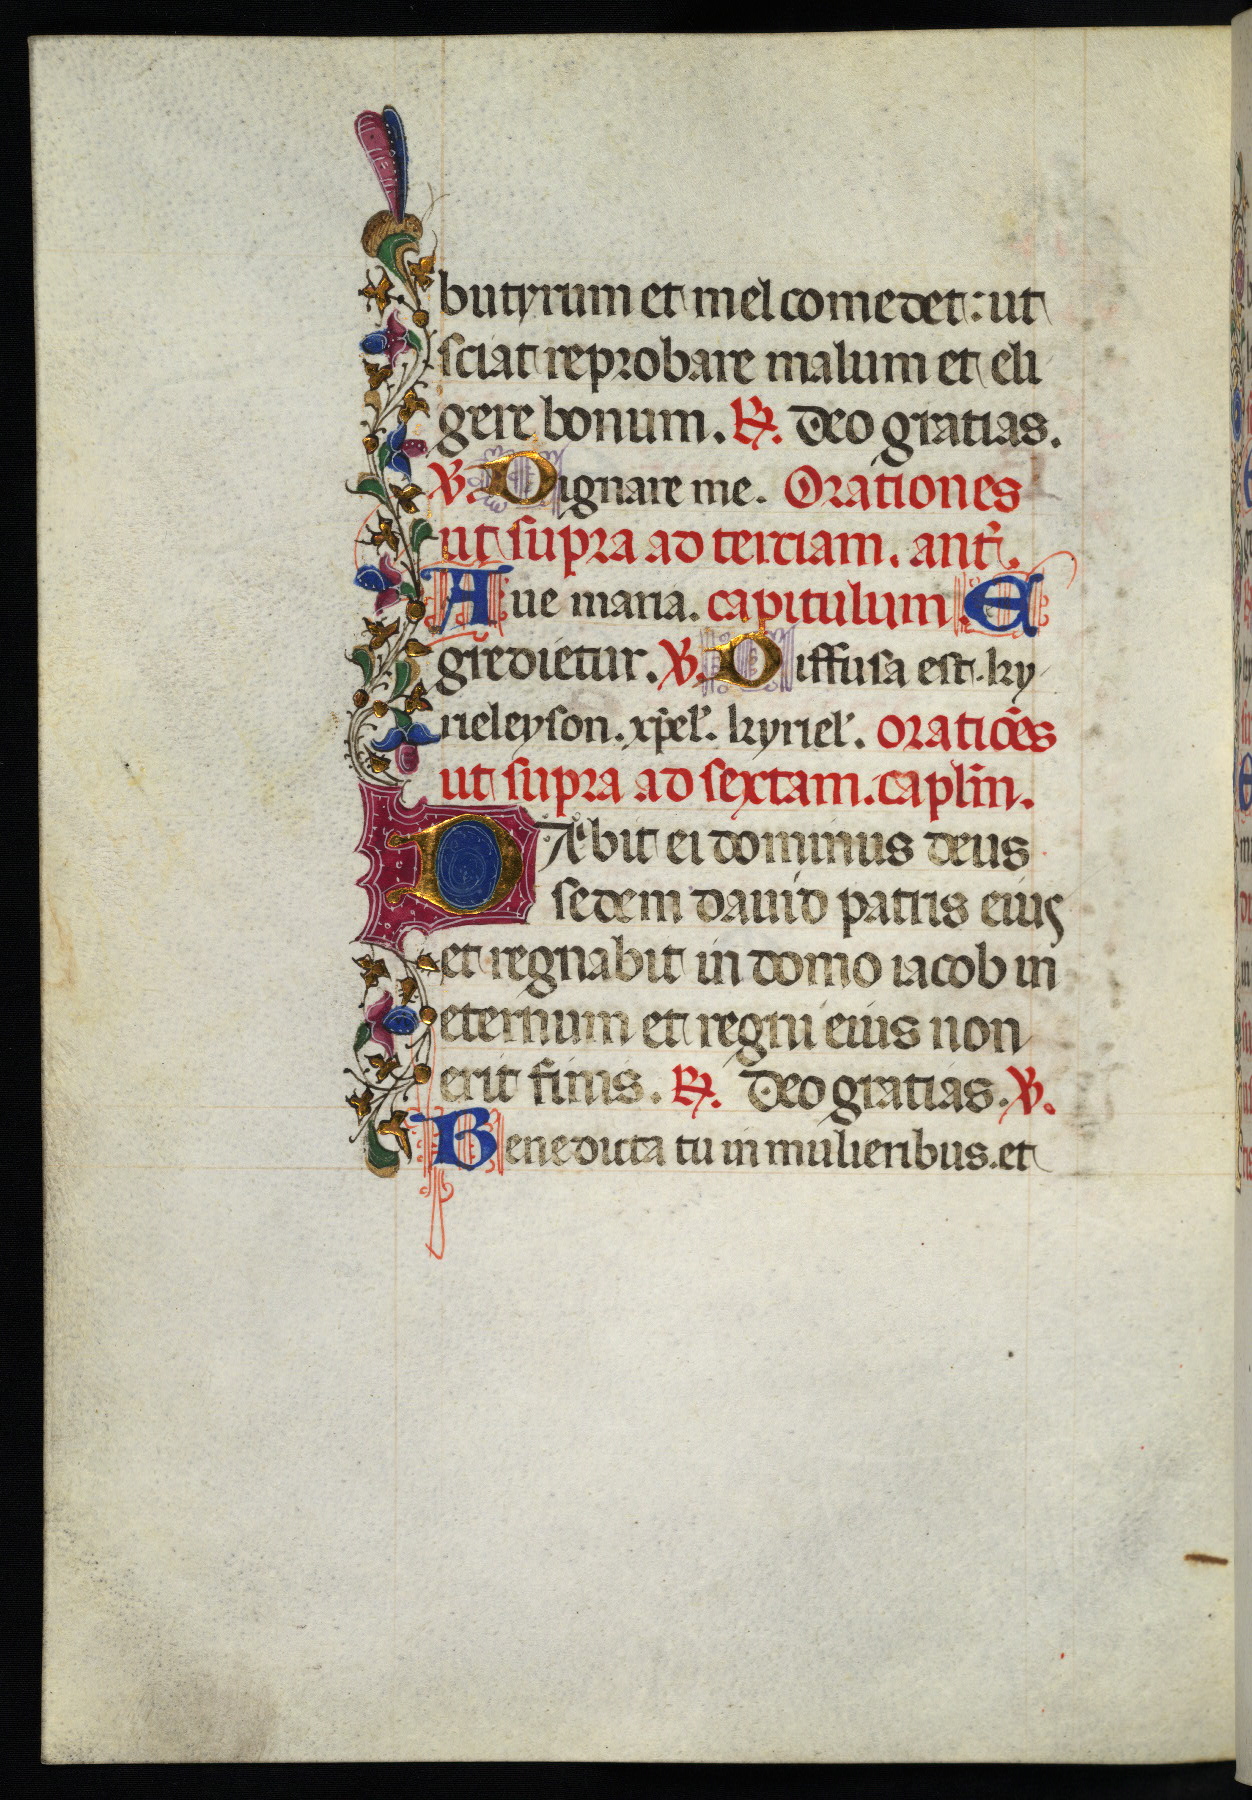 butyrum et mel comedet: ut
sciat reprobare malum et eli
gere bonum. ℟. Deo gratias.
℣. Dignare me. Orationes
ut supra ad terciam. ant̃.
Aue maria. capitulum. E
gredietur. ℣. Diffusa est. ky
rieleyson. xp̃el'. kyriel'. oratiões
ut supra ad sextam. caplm̃.
DAbit ei dominus deus
sedem dauid patris eius
et regnabit in domo iacob in
eternum et regni eius non
erit finis. ℟. Deo gratias. ℣.
Benedicta tu in mulieribus. et